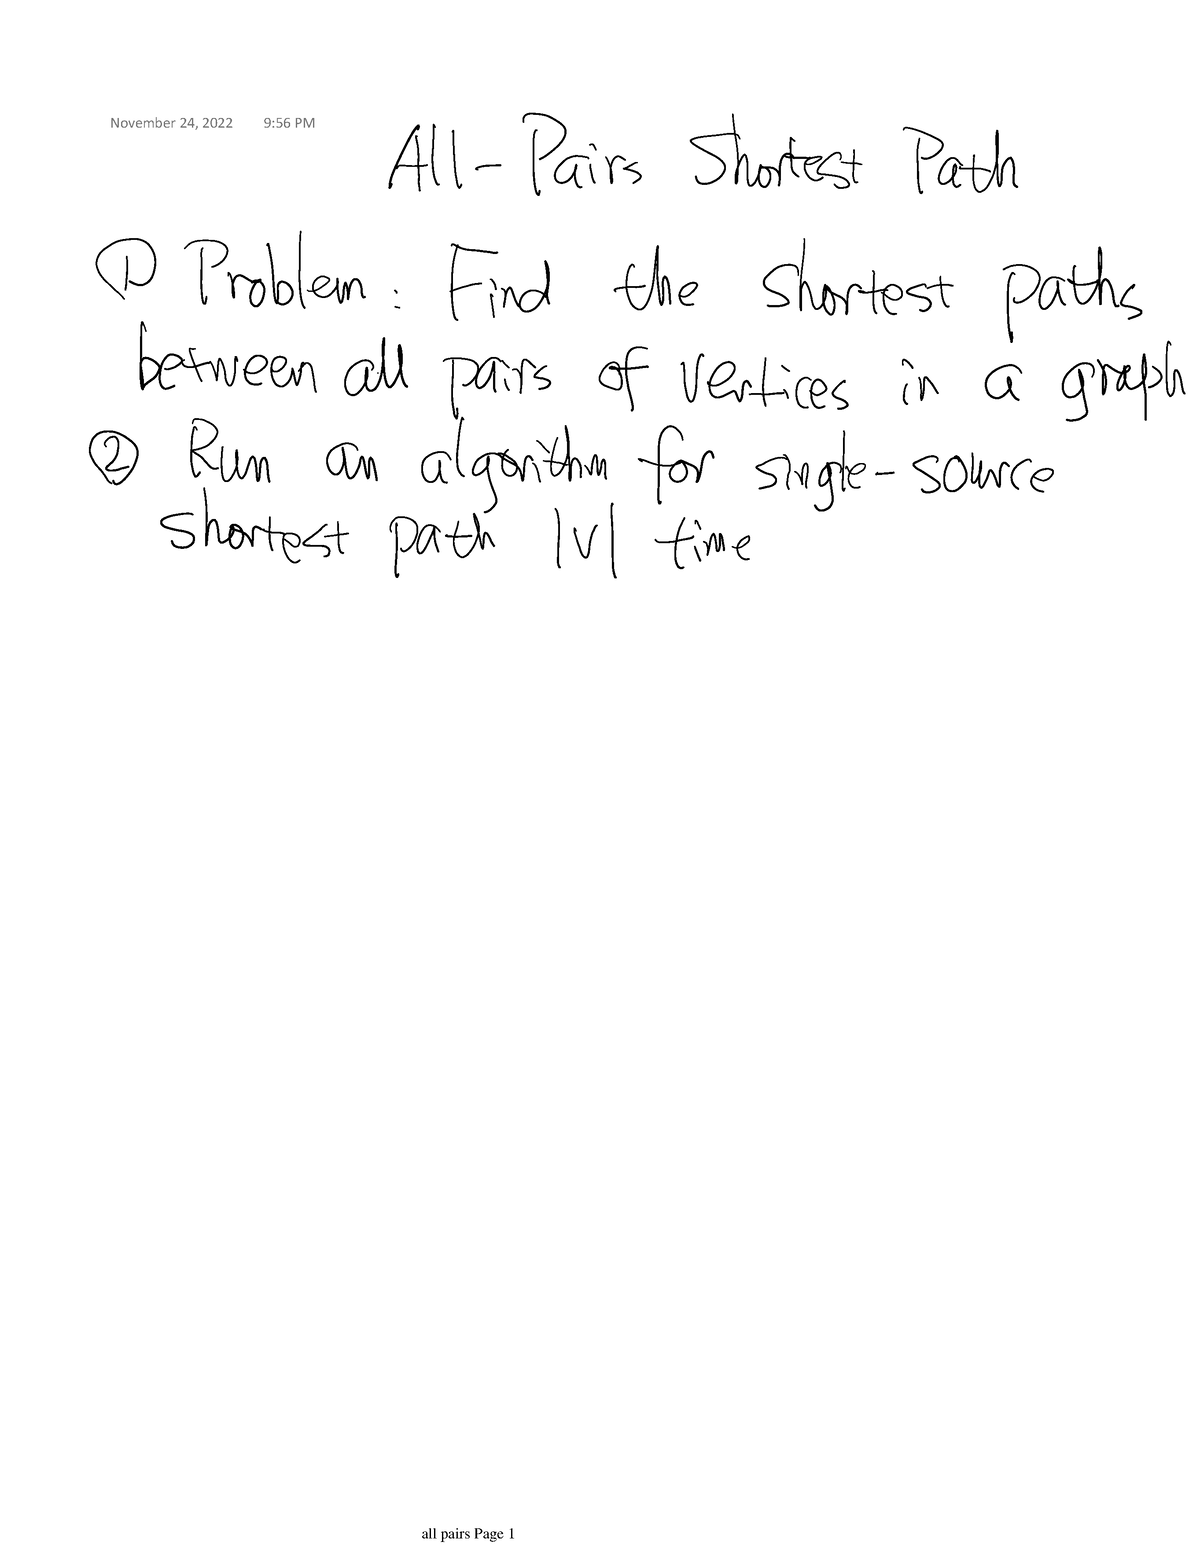 November 24, 2022 9:56 PM
All-Pairs Shortest Path
① Problem: Find the shortest paths
between all pairs of vertices in a graph
② Run an algorithm for single-source
shortest path |V| time
all pairs Page 1